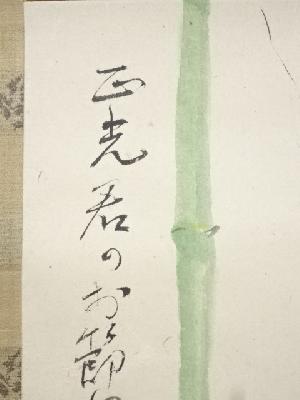 正光君のお節